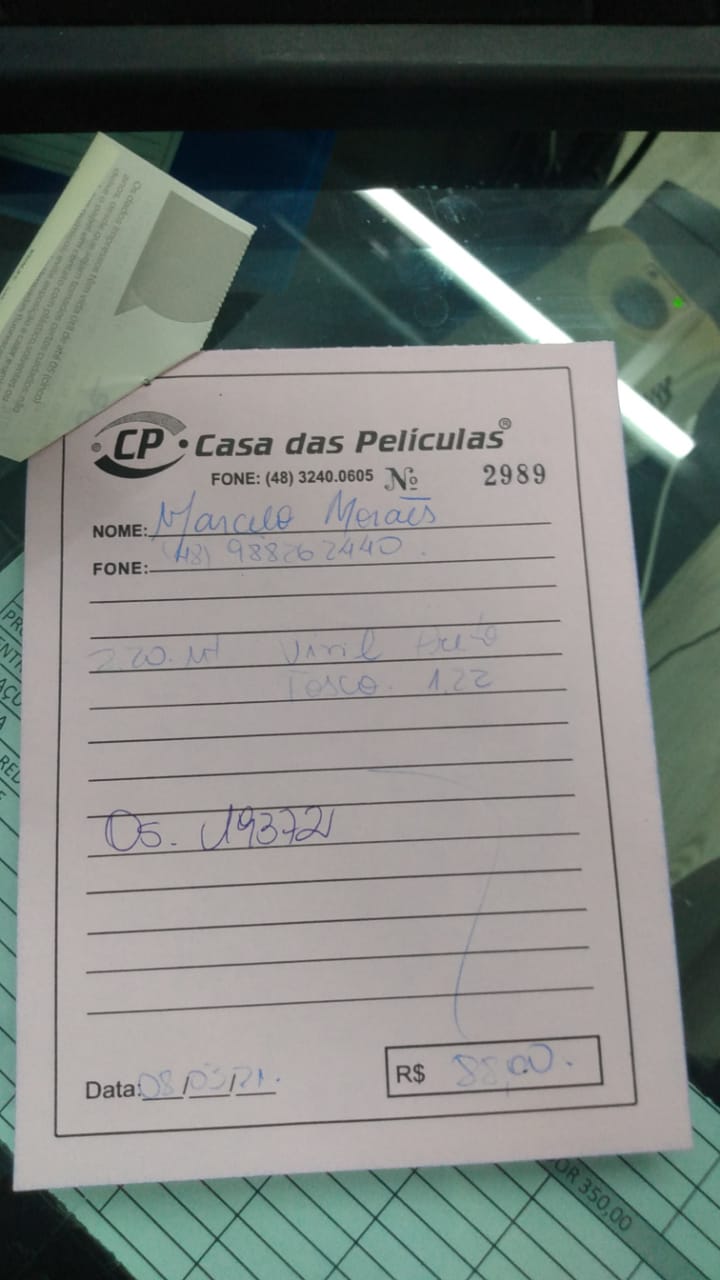 CP Casa das Películas®
FONE: (48) 3240.0605 Nº 2989
NOME: Marcelo Moraes
FONE: (48) 988262440.
2.20. Mt Vinil Preto
Fosco. 1,22
Os. 19372
Data: 08/03/21.
R$ 88,00.
OR 350,00